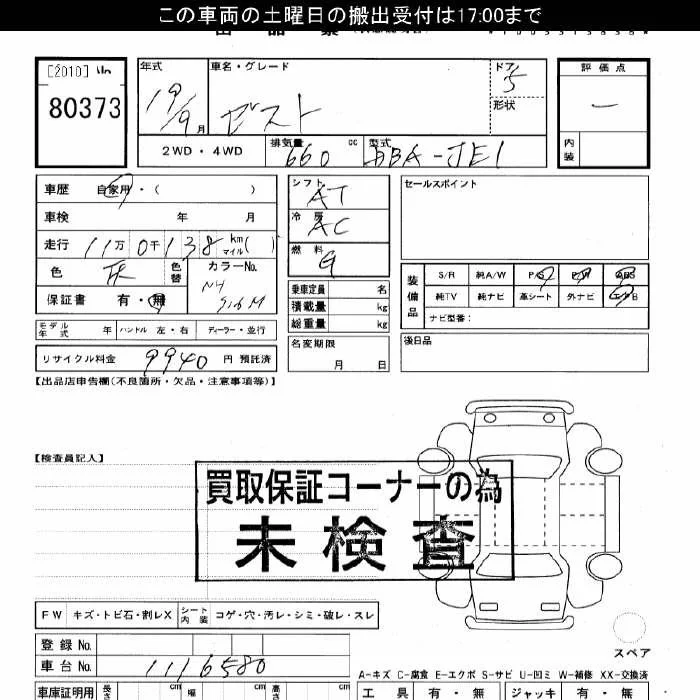 この車両の土曜日の搬出受付は17:00まで
[2010]
80373
年式
19/9月
車名・グレード
ゼスト
ドア
5
形状
評価点
内装
2WD・4WD
排気量
660 cc
型式
DBA-JE1
車歴 自家用・( )
車検 年 月
走行 11万 0千 138 km マイル ( )
色 灰
色替
カラーNo.
NH
保証書 有・無
シフト
AT
冷房
AC
燃料
G
乗車定員 名
積載量 kg
総重量 kg
名変期限
月 日
セールスポイント
装備品
S/R 純A/W P/S P/W ABS
純TV 純ナビ 革シート 外ナビ
ナビ型番:
後日品
モデル年式 年 ハンドル 左・右 ディーラー・並行
リサイクル料金 9940 円 預託済
【出品店申告欄(不良箇所・欠品・注意事項等)】
【検査員記入】
買取保証コーナーの為
未検査
FW キズ・トビ石・割レX シート内装 コゲ・穴・汚レ・シミ・破レ・スレ
スペア
登録No.
車台No. 1116580
A-キズ C-腐食 E-エクボ S-サビ U-凹ミ W-補修 XX-交換済
車庫証明用 長さ cm 幅 cm 高さ cm
工具 有・無 ジャッキ 有・無